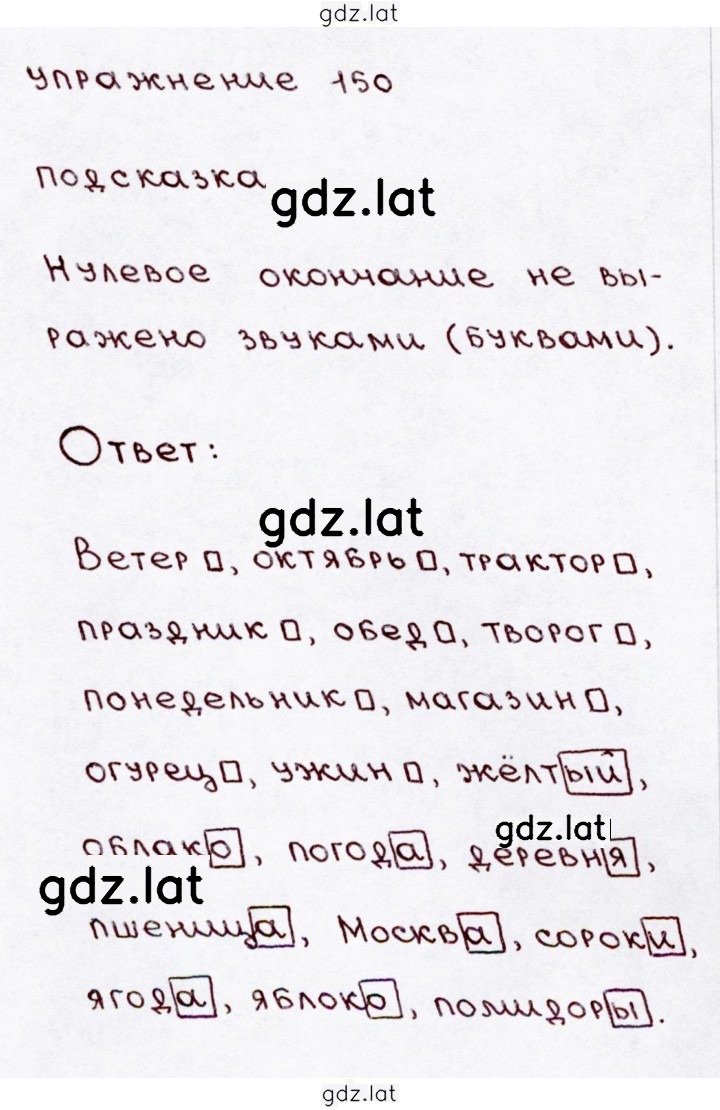 gdz.lat
упражнение 150
подсказка
gdz.lat
Нулевое окончание не вы-
ражено звуками (буквами).
Ответ:
gdz.lat
Ветер□, октябрь□, трактор□,
праздник□, обед□, творог□,
понедельник□, магазин□,
огурец□, ужин□, жёлтый,
gdz.lat
облако, погода, деревня,
gdz.lat
пшеница, Москва, сороки,
ягода, яблоко, помидоры.
gdz.lat